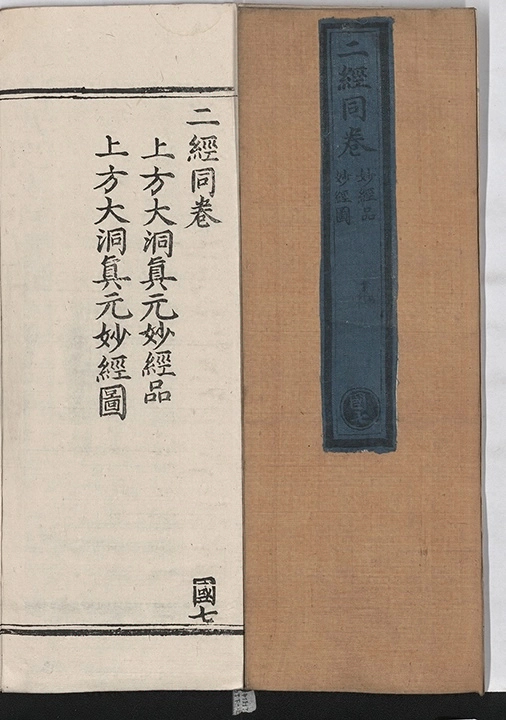 二經同卷
妙經品
妙經圖
國七
二經同卷
上方大洞眞元妙經品
上方大洞眞元妙經圖
國七